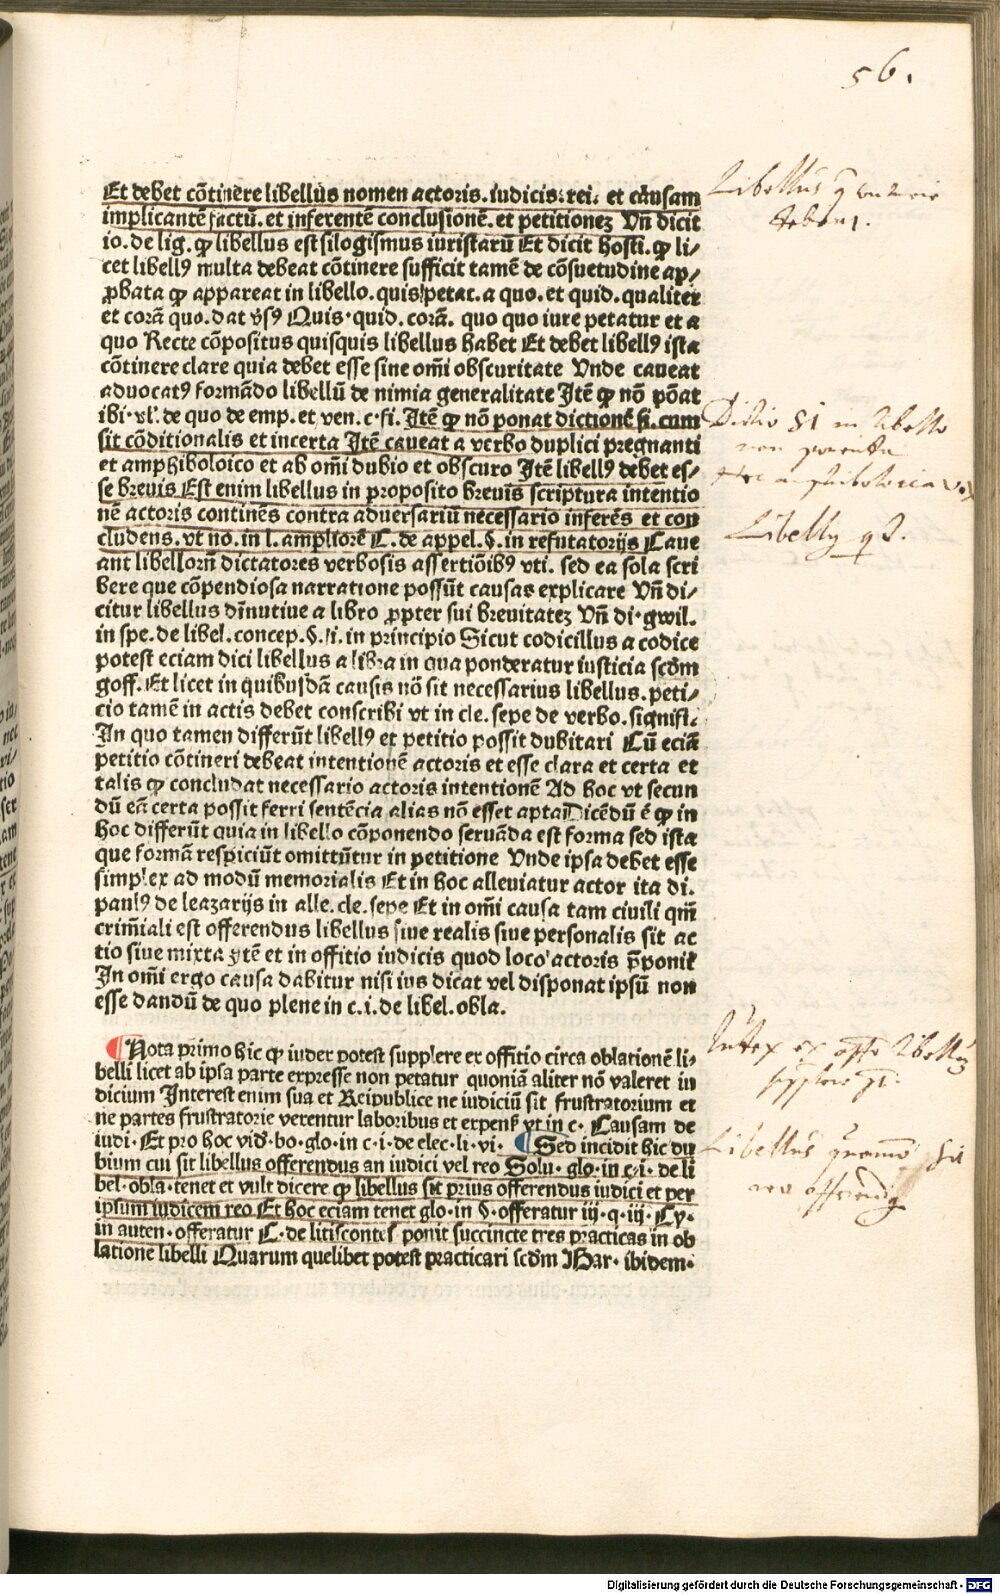 56.
Et debet cõtinere libellus nomen actoris. iudicis: rei. et causam
implicantẽ factũ. et inferentẽ conclusionẽ. et petitionez Vñ dicit
io. de lig. ꝙ libellus est silogismus iuristarũ Et dicit hosti. ꝙ li⸗
cet libellꝰ multa debeat cõtinere sufficit tamẽ de cõsuetudine ap⸗
ꝓbata ꝙ appareat in libello. quis petat. a quo. et quid. qualiter
et corã quo. dat v̉sꝰ Quis. quid. corã. quo quo iure petatur et a
quo Recte cõpositus quisquis libellus habet Et debet libellꝰ ista
cõtinere clare quia debet esse sine om̃i obscuritate Vnde caueat
aduocatꝰ formãdo libellũ de nimia generalitate Itẽ ꝙ nõ põat
ibi. vl'. de quo de emp. et ven. c. fi. Itẽ ꝙ nõ ponat dictionẽ si. cum
sit cõditionalis et incerta Itẽ caueat a verbo duplici pregnanti
et amphiboloico et ab om̃i dubio et obscuro Itẽ libellꝰ debet es⸗
se breuis Est enim libellus in proposito breuis scriptura intentio
nẽ actoris continẽs contra aduersariũ necessario inferẽs et con
cludens. vt no. in l. ampliorẽ C. de appel. §. in refutatorijs Caue
ant libellorũ dictatores verbosis assertiõibꝰ vti. sed ea sola scri
bere que cõpendiosa narratione possũt causas explicare Vñ di⸗
citur libellus dĩnutiue a libro ꝓpter sui breuitatez Vñ di. gwil.
in spe. de libel. concep. §. i. in principio Sicut codicillus a codice
potest eciam dici libellus a libra in qua ponderatur iusticia scd̃m
goff. Et licet in quibusdã causis nõ sit necessarius libellus. peti⸗
cio tamẽ in actis debet conscribi vt in cle. sepe de verbo. signifi.
In quo tamen differũt libellꝰ et petitio possit dubitari Cũ eciã
petitio cõtineri debeat intentionẽ actoris et esse clara et certa et
talis ꝙ concludat necessario actoris intentionẽ Ad hoc vt secun
dũ eã certa possit ferri sentẽcia alias nõ esset apta Dicẽdũ ẽ ꝙ in
hoc differũt quia in libello cõponendo seruãda est forma sed ista
que formã respiciũt omittũtur in petitione Vnde ipsa debet esse
simplex ad modũ memorialis Et in hoc alleuiatur actor ita di.
paulꝰ de leazarijs in alle. cle. sepe Et in om̃i causa tam ciuili qm̃
crim̃iali est offerendus libellus siue realis siue personalis sit ac
tio siue mixta et in offitio iudicis quod loco actoris p̃ponit
In om̃i ergo causa dabitur nisi ius dicat vel disponat ipsũ non
esse dandũ de quo plene in c. i. de libel. obla.
¶ Nota primo hic ꝙ iudex potest supplere ex offitio circa oblationẽ li⸗
belli licet ab ipsa parte expresse non petatur quoniã aliter nõ valeret iu
dicium Interest enim sua et Reipublice ne iudiciũ sit frustratorium et
ne partes frustratorie verentur laboribus et expens̃ vt in c. Causam de
iudi. Et pro hoc vid̃. bo. glo. in c. i. de elec. li. vi. ¶ Sed incidit hic du
bium cui sit libellus offerendus an iudici vel reo Solu. glo. in c. i. de li
bel. obla. tenet et vult dicere ꝙ libellus sit prius offerendus iudici et per
ipsum iudicem reo Et hoc eciam tenet glo. in §. offeratur iij. q. iij. Cy.
in auten. offeratur C. de litiscontes̃ ponit succincte tres practicas in ob
latione libelli Quarum quelibet potest practicari scd̃m Bar. ibidem.
Libellus
debeat.
Dictio Si in libello
non
Libellus
Iudex ex libellũ
supplere
Libellus quomõ sit
reo
Digitalisierung gefördert durch die Deutsche Forschungsgemeinschaft - DFG